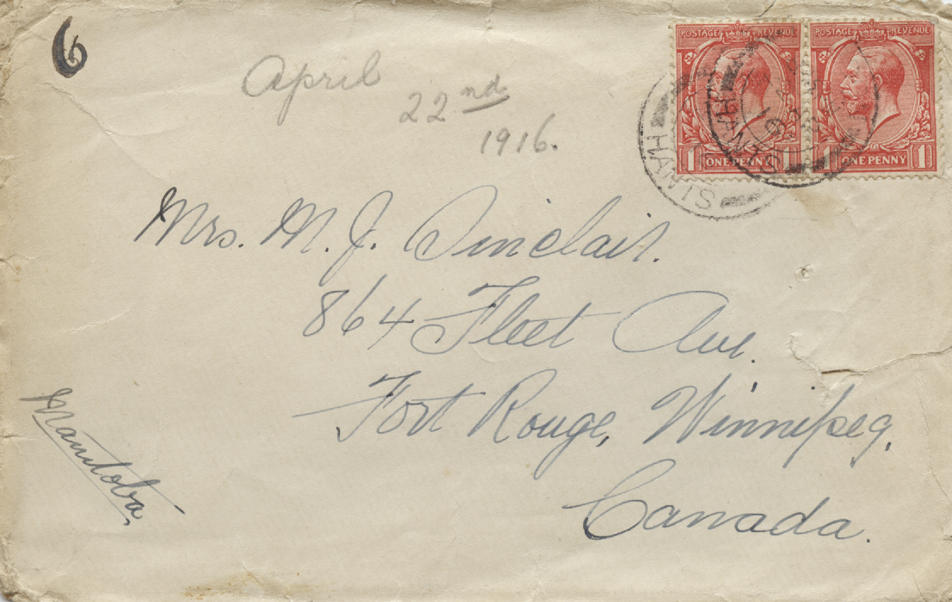 6
April
22nd
1916.
POSTAGE REVENUE
POSTAGE REVENUE
1 ONE PENNY 1
ONE PENNY 1
HANTS
HANTS
Mrs. M. J. Sinclair.
864 Fleet Ave.
Fort Rouge, Winnipeg,
Canada.
Manitoba,